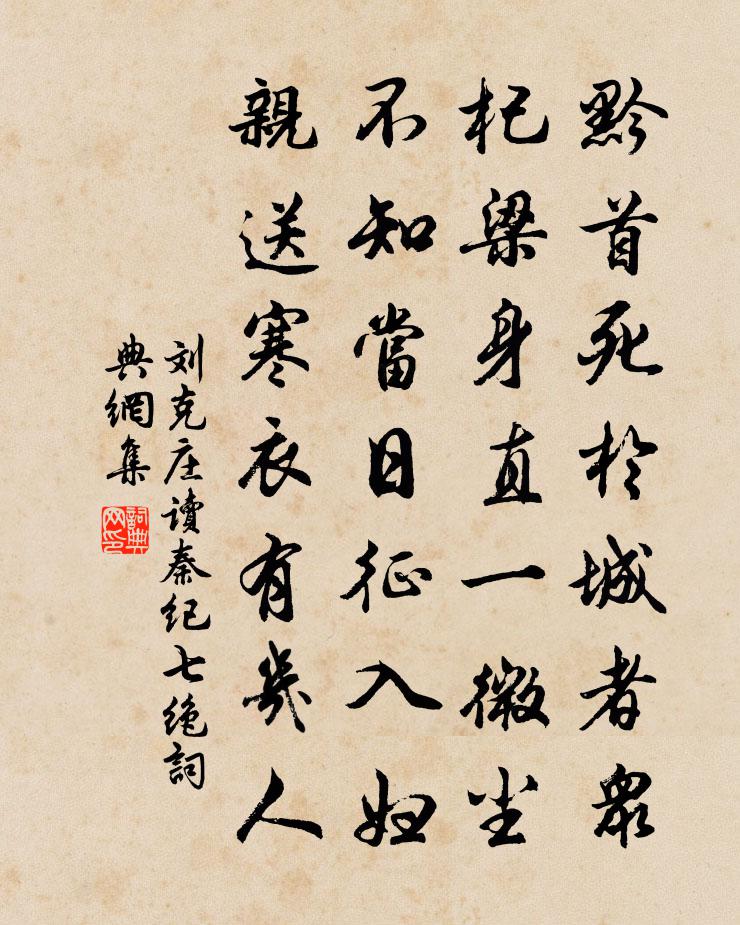 黔首死於城者眾
杞梁身直一微塵
不知當日征入妇
親送寒衣有幾人
刘克庄讀秦纪七绝詞
典網集
詞典
网印